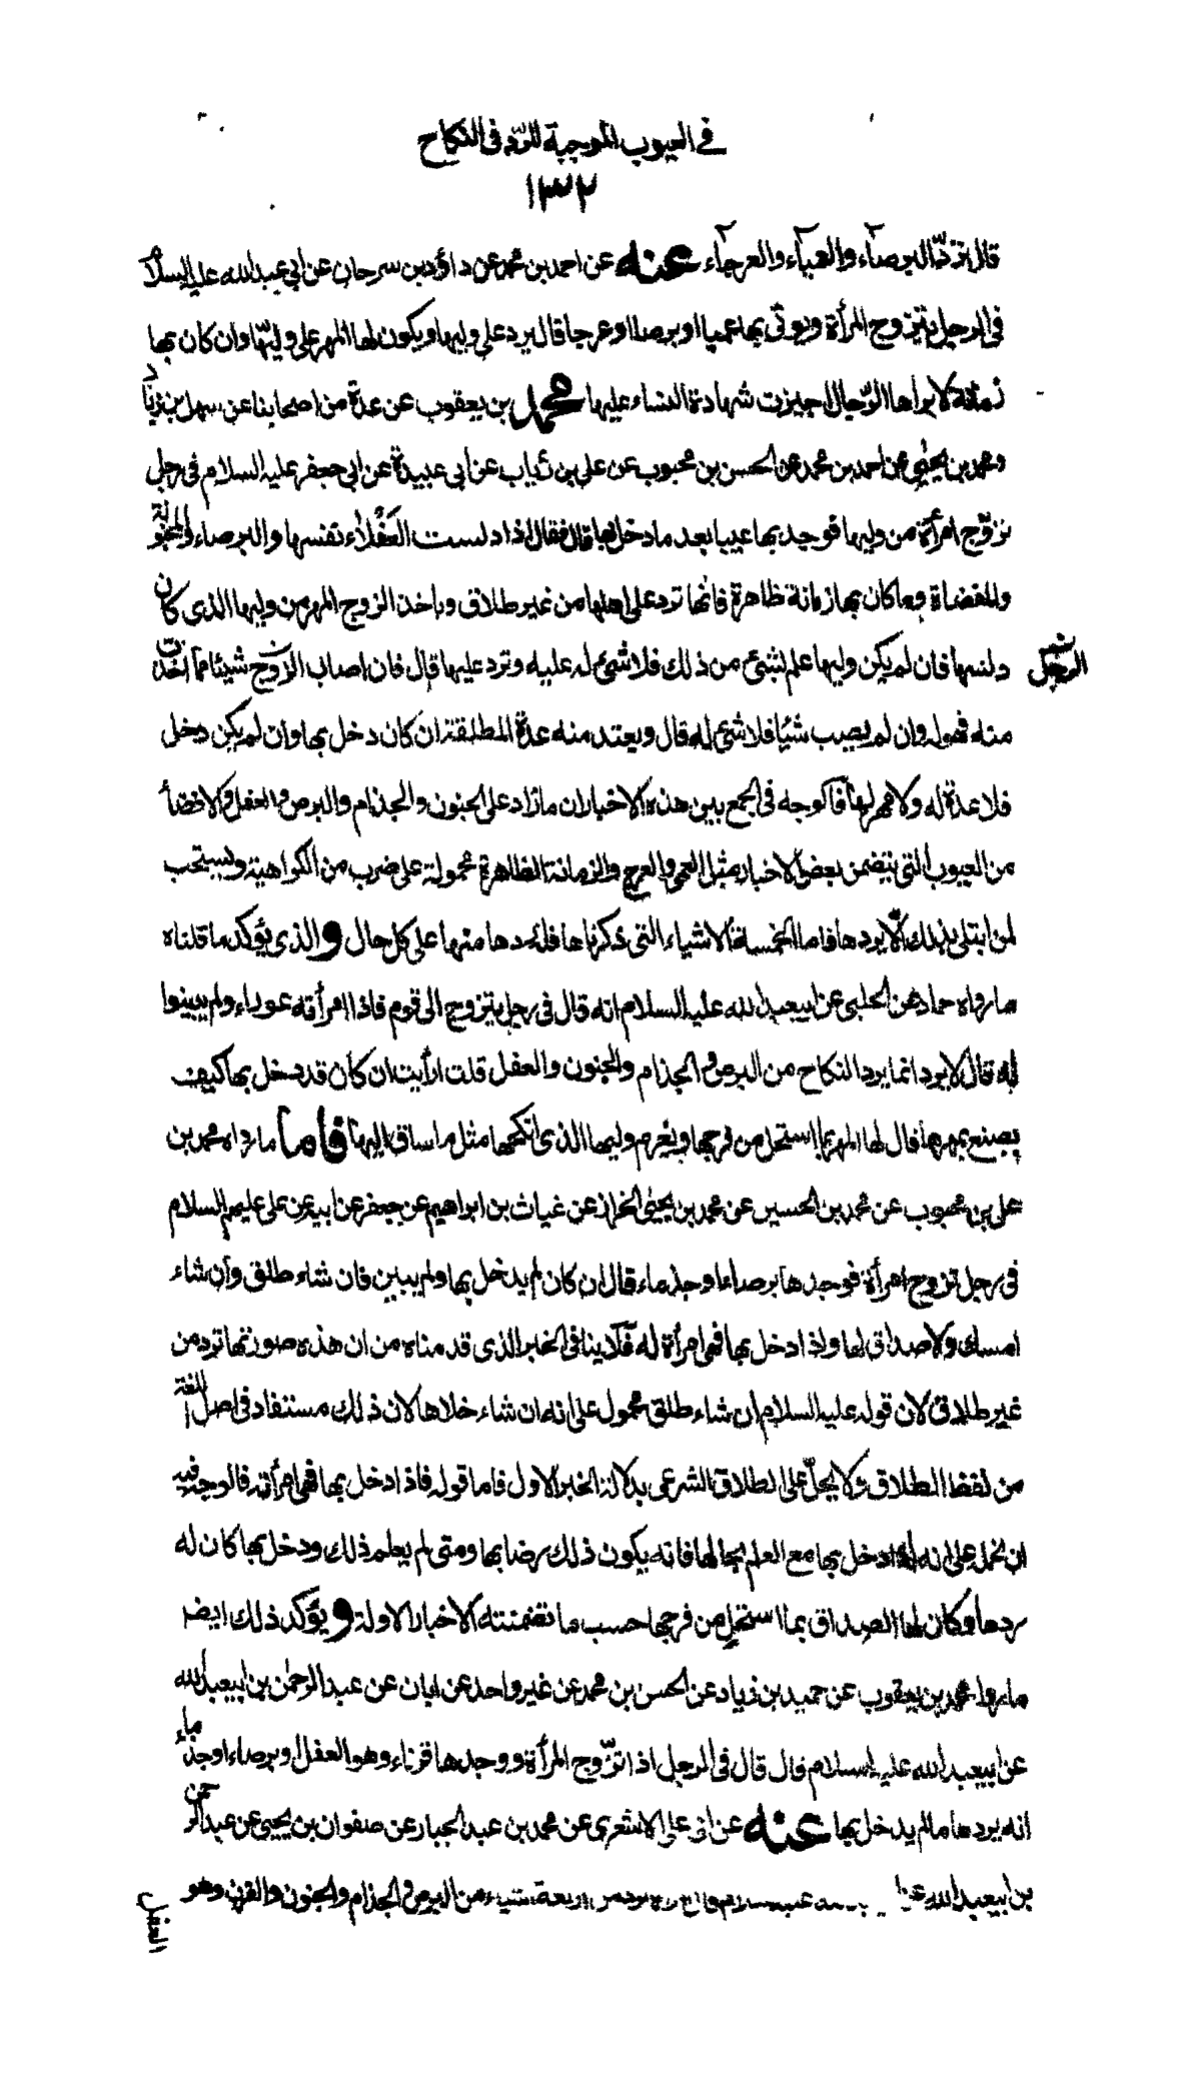 في العيوب الموجبة للرّد في النكاح
١٣٢
قال ترّد البرصاء والعمياء والعرجاء عنه عن احمد بن محمد عن داؤد بن سرحان عن ابي عبد الله عليه السلام
في الرجل يتزوج المرأة ويوتى بها عمياا وبرصاا وعرجا قال يرد على وليها ويكون لها المهر على وليّها وان كان بها
زمانة لا يراها الرّجال اجيزت شهادة النساء عليها محمد بن يعقوب عن عدة من اصحابنا عن سهل بن زياد
ومحمد بن يحيٰى عن احمد بن محمد عن الحسن بن محبوب عن علي بن رئاب عن ابي عبيدة عن ابي جعفر عليه السلام في رجل
تزوّج امرأة من وليها فوجد بها عيبا بعد ما دخل بها قال فقال اذا دلست العَفلاء نفسها والبرصاء والمجنونة
والمفضاة وما كان بها زمانة ظاهرة فانها ترد على اهلها من غير طلاق وياخذ الزوج المهر من وليها الذي كان
دلسها فان لم يكن وليها علم بشيء من ذلك فلا شيء له عليه وترد عليها قال فان اصاب الزوج شيئا مما اخذت
الرجل
منه فهو له وان لم يصب شيئا فلا شيء له قال ويعتد منه عدة المطلقة ان كان دخل بها وان لم يكن دخل
فلا عدة له ولا مهر لها فالوجه في الجمع بين هذه الاخبار ان ما زاد على الجنون والجذام والبرص والعفل والافضاء
من العيوب التي يتضمن بعض الاخبار مثل العمى والعرج والزمانة الظاهرة محمولة على ضرب من الكراهية ويستحب
لمن ابتلي بذلك الّا يردها فاما الخمسة الاشياء التي ذكرناها فله ردها منها على كل حال و الذي يؤكد ما قلناه
ما رواه حماد عن الحلبي عن ابيعبد الله عليه السلام انه قال في رجل يتزوج الى قوم فاذا امرأته عوراء ولم يبينوا
له قال لا يرد انما يرد النكاح من البرص والجذام والجنون والعفل قلت ارأيت ان كان قد دخل بها كيف
يصنع بمهرها قال لها المهر بما استحل من فرجها ويغرم وليها الذي انكحها مثل ما ساق اليها فاما ما رواه محمد بن
علي بن محبوب عن محمد بن الحسين عن محمد بن يحيٰى الخزاز عن غياث بن ابراهيم عن جعفر عن ابيه عن علي عليهم السلام
في رجل تزوج امرأة فوجدها برصاء او جذماء قال ان كان لم يدخل بها ولم يبين فان شاء طلق وان شاء
امسك ولا صداق لها واذا دخل بها فهي امرأة له فلا ينافي الخبر الذي قدمناه من ان هذه صورتها ترد من
غير طلاق لان قوله عليه السلام ان شاء طلق محمول على انه ان شاء خلاها لان ذلك مستفاد في اصل اللغة
من لفظ الطلاق ولا يحمل على الطلاق الشرعي بدلالة الخبر الاول فاما قوله فاذا دخل بها فهي امرأته فالوجه فيه
ان نحمله على انه اذا دخل بها مع العلم بحالها فانه يكون ذلك رضا بها ومتى لم يعلم ذلك ودخل بها كان له
ردها وكان لها الصداق بما استحل من فرجها حسب ما تضمنته الاخبار الاولة و يؤكد ذلك ايضا
ما رواه محمد بن يعقوب عن حميد بن زياد عن الحسن بن محمد عن غير واحد عن ابان عن عبد الرحمٰن بن ابيعبد الله
عن ابيعبد الله عليه السلام قال قال في الرجل اذا تزّوج المرأة ووجدها قرناء وهو العفل او برصاء او جذماء
انه يردها ما لم يدخل بها عنه عن ابي علي الاشعري عن محمد بن عبد الجبار عن صفوان بن يحيى عن عبد الرحمن
بن ابيعبد الله عن السلام قال اربعة اشياء من البرص والجذام والجنون والقرن وهو
العفل